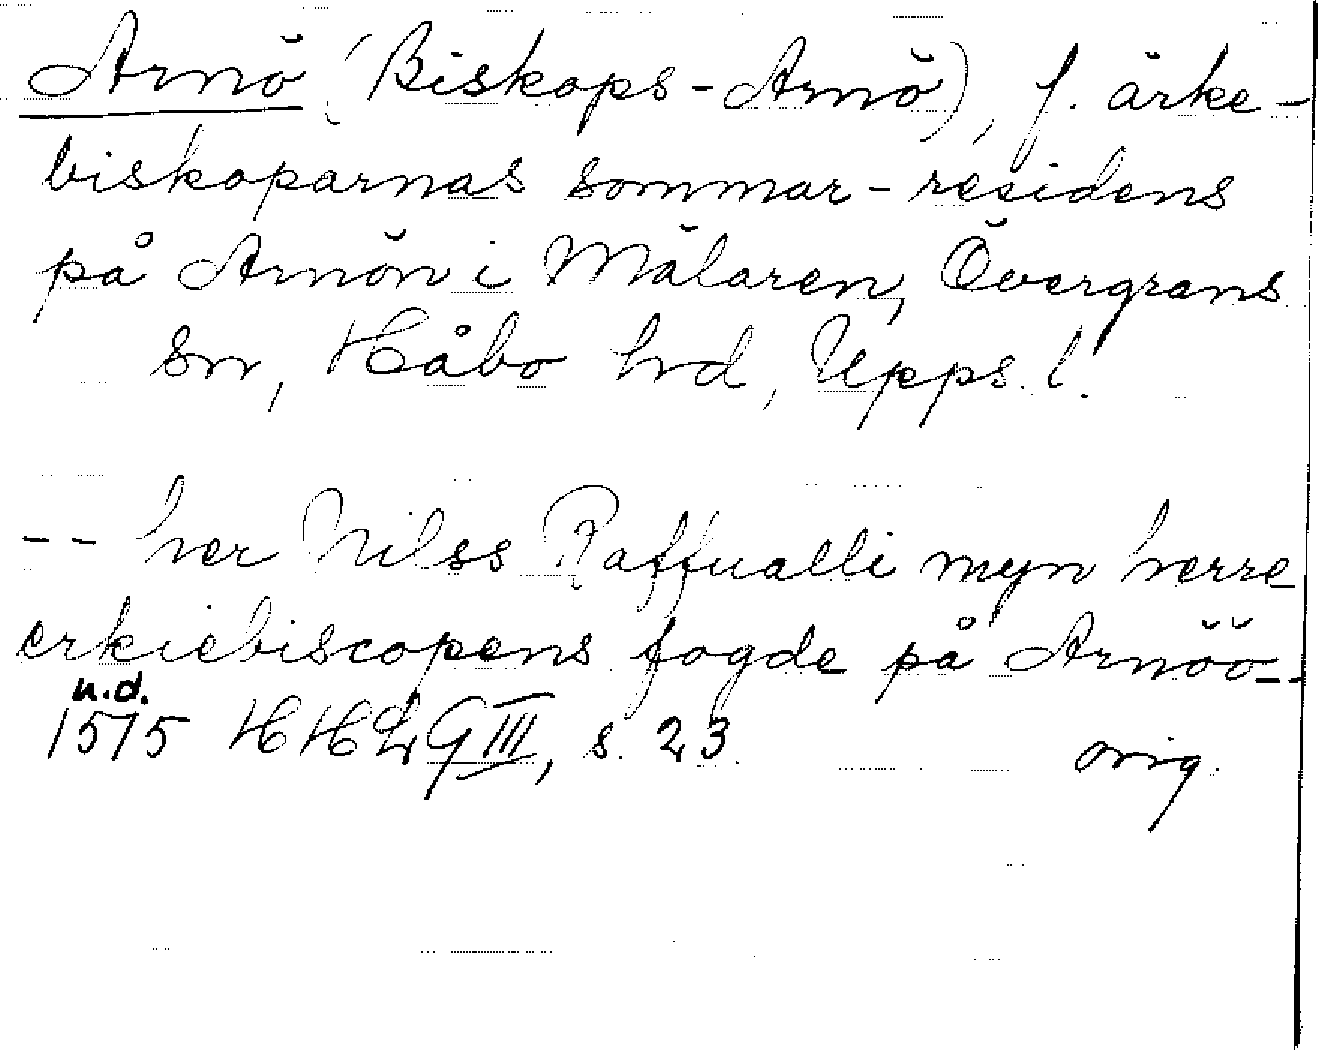 Arnö (Biskops-Arnö), f. ärke-
biskoparnas sommar-residens
på Arnön i Mälaren, Övergrans
sn, Håbo hd, Upps. l.
-- her Nilss Raffualli myn herre
erkiebiscopens fogde på Arnöö--
u.d.
1515 HH LG III, s. 23 orig.